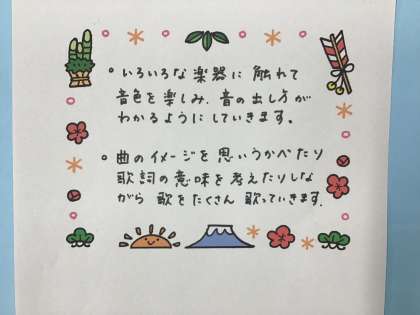 ○いろいろな楽器に 触れて
音色を楽しみ、音の出し方が
わかるようにしていきます。
○曲のイメージを思いうかべたり
歌詞の意味を考えたりしな
がら 歌をたくさん 歌っていきます。